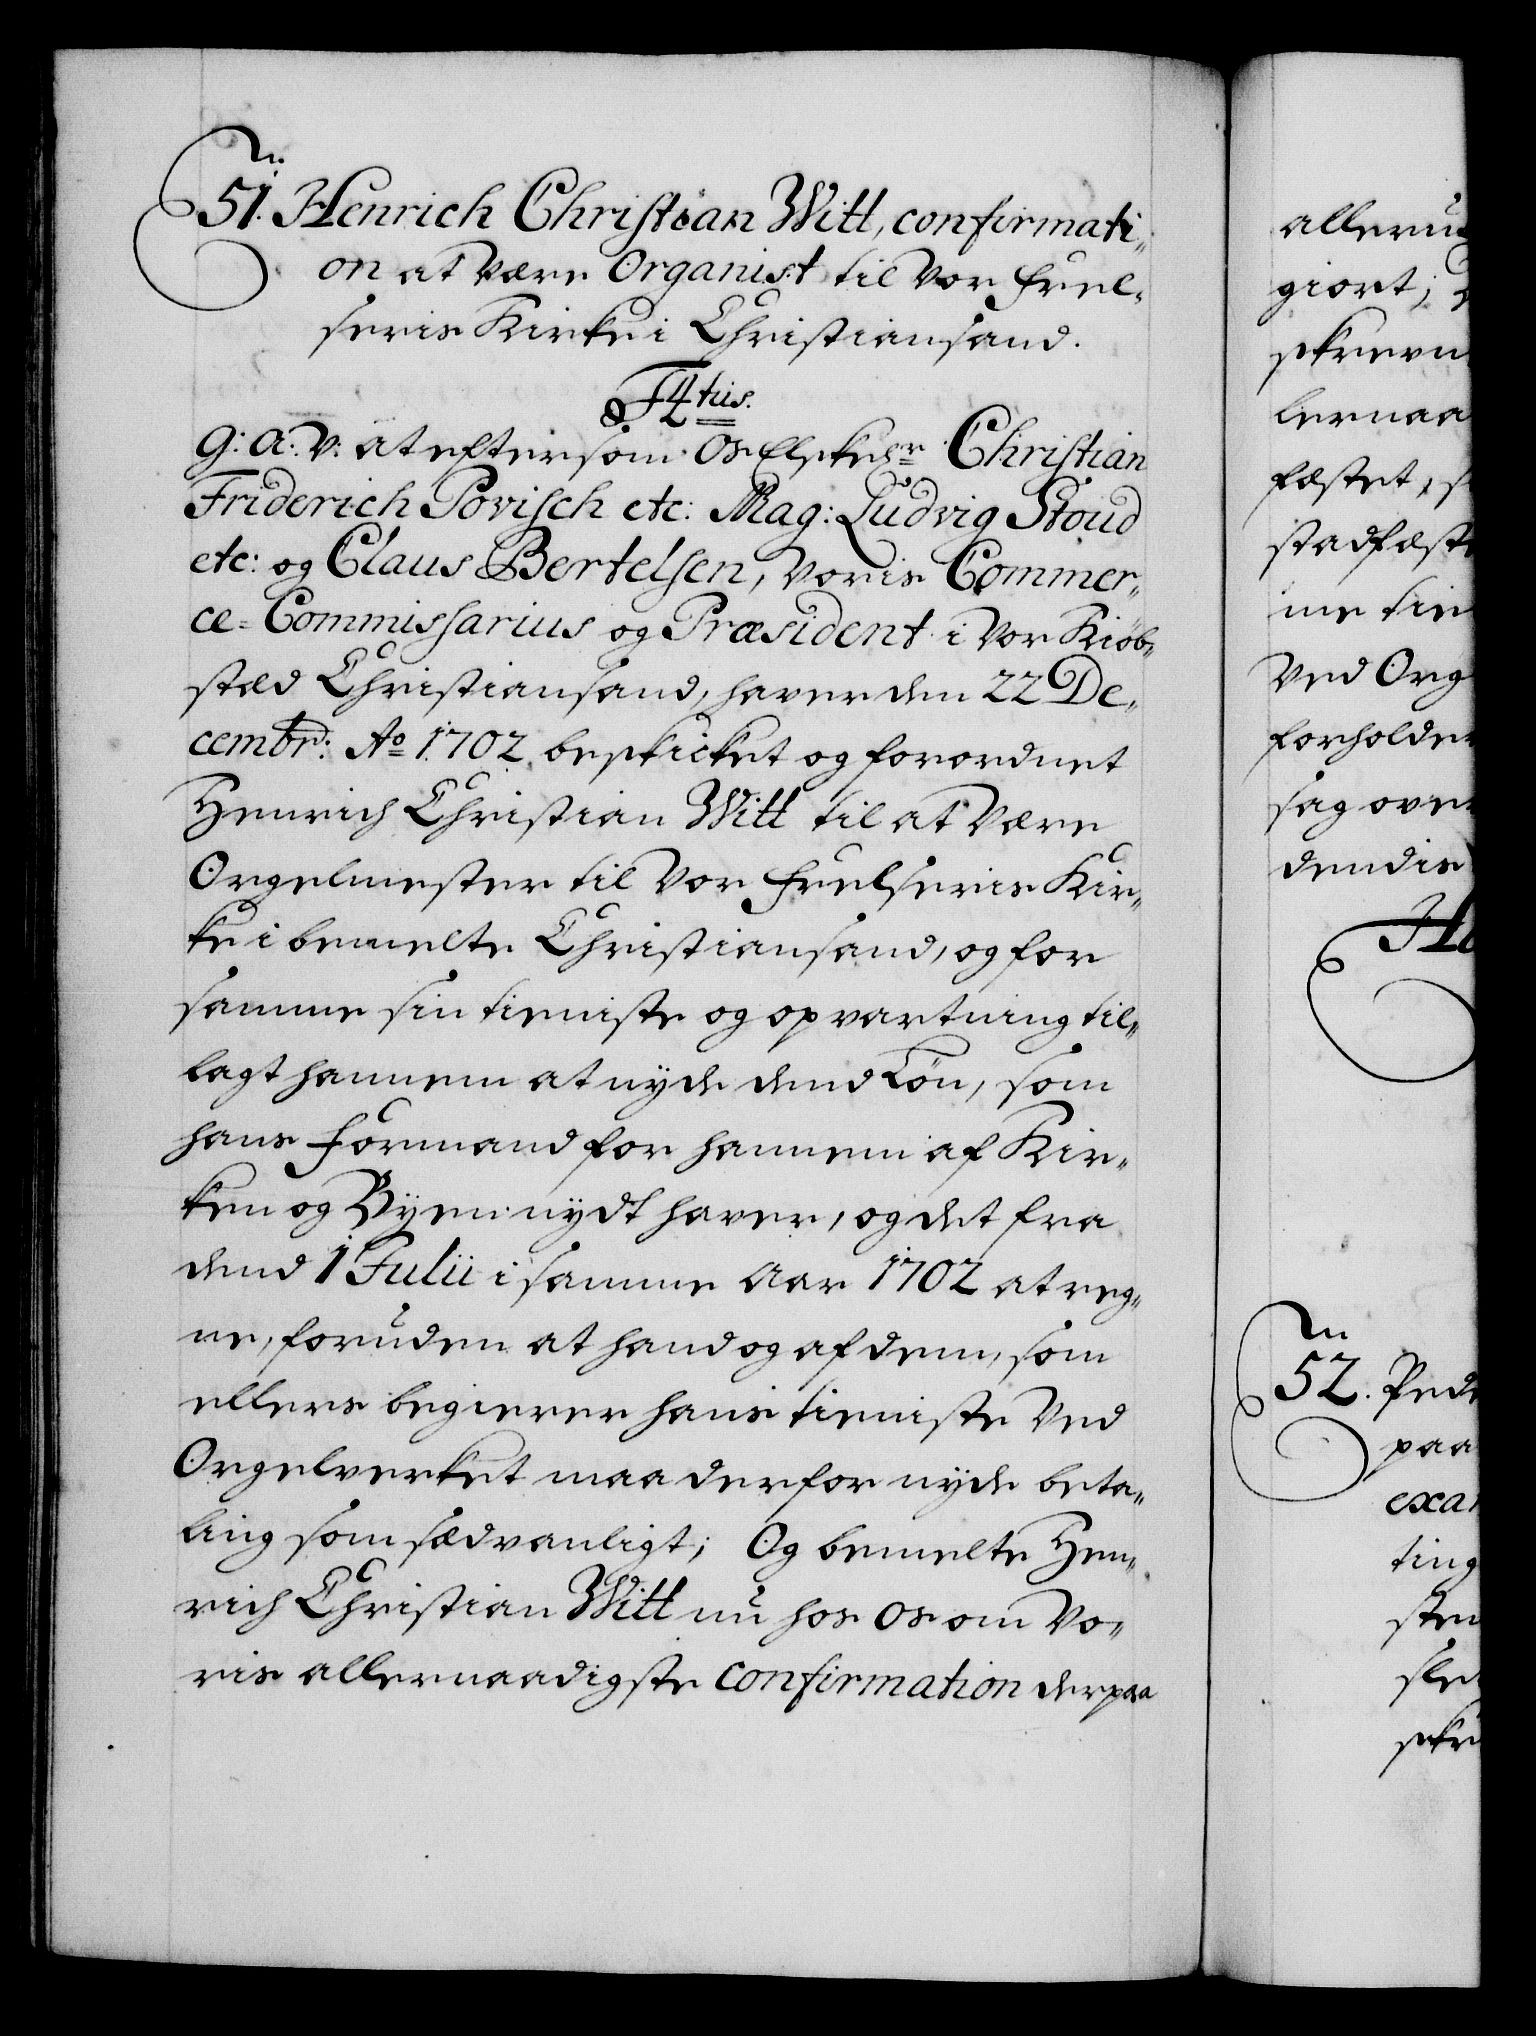 51. Henrich Christian Witt, confirmati„
on at være Organist til Vor Frel„
seris Kirke i Christiansand.
F4tus.
G: A: V: at eftersom Os Elskedr Christian
Friderich Povisch etc: Mag: Ludvig Stoud
etc: og Claus Bertelsen, voris Commer„
ce-Commissarius og Præsident i Vor Kiöb„
stæd Christiansand, haver den 22 De„
cembr: Ao 1702 beskicket og forordnet
Henrich Christian Witt til at være
Orgelmester til Vor Frelseris Kir„
ke i bemelte Christiansand, og for
samme sin tieniste og opvartning til„
lagt hannem at nyde dend Lön, som
hans Formand for hannem af Kir„
ken og Byen nydt haver, og det fra
dend 1 Julii i samme Aar 1702 at reg„
ne, foruden at hand og af dem, som
ellers begierer hans tieniste ved
Orgelverket maa derfor nyde beta„
ling som sædvanligt; Og bemelte Hen„
rich Christian Witt nu hos Os om Vo„
ris allernaadigste confirmation derpaa
alleru
giort;
skrevn
lernaa
fæstet, s
stadfæst
me tie
Ved Org
forholder
sag over
dendis
52. Ped
paa
exa
ting
sten
sle
skr